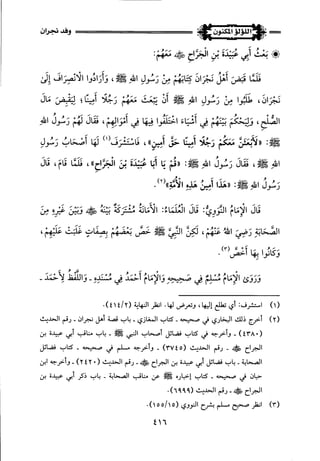 اللؤلؤ المكنون
وفد نجران
بَعْثُ أَبِي عُبَيْدَةَ بنِ الجَرَّاحِ ﵁ مَعَهُمْ:
فَلَمَّا قَبَضَ أَهْلُ نَجْرَانَ كِتَابَهُمْ مِنْ رَسُولِ اللهِ ﷺ، وَأَرَادُوا الِانْصِرَافَ إِلَى
نَجْرَانَ، طَلَبُوا مِنْ رَسُولِ اللهِ ﷺ أَنْ يَبْعَثَ مَعَهُمْ رَجُلًا أَمِينًا؛ لِيَقْبِضَ مَالَ
الصُّلْحِ، وَلِيَحْكُمَ بَيْنَهُمْ فِي أَشْيَاءَ اخْتَلَفُوا فِيهَا فِي أَمْوَالِهِمْ، فَقَالَ لَهُمْ رَسُولُ اللهِ
ﷺ: «لَأَبْعَثَنَّ مَعَكُمْ رَجُلًا أَمِينًا حَقَّ أَمِينٍ»، فَاسْتَشْرَفَ (١) لَهَا أَصْحَابُ رَسُولِ
اللهِ ﷺ، فَقَالَ رَسُولُ اللهِ ﷺ: «قُمْ يَا أَبَا عُبَيْدَةَ بنَ الجَرَّاحِ»، فَلَمَّا قَامَ، قَالَ
رَسُولُ اللهِ ﷺ: «هَذَا أَمِينُ هَذِهِ الْأُمَّةِ» (٢).
قَالَ الإِمَامُ النَّوَوِيُّ: قَالَ العُلَمَاءُ: الأَمَانَةُ مُشْتَرَكَةٌ بَيْنَهُ ﵁ وَبَيْنَ غَيْرِهِ مِنَ
الصَّحَابَةِ رَضِيَ اللهُ عَنْهُمْ، لَكِنَّ النَّبِيَّ ﷺ خَصَّ بَعْضَهُمْ بِصِفَاتٍ غَلَبَتْ عَلَيْهِمْ،
وَكَانُوا بِهَا أَخَصَّ (٣).
وَرَوَى الإِمَامُ مُسْلِمٌ فِي صَحِيحِهِ وَالإِمَامُ أَحْمَدُ فِي مُسْنَدِهِ - وَاللَّفْظُ لِأَحْمَدَ -
(١) استشرف: أي تطلع إليها، وتعرض لها. انظر النهاية (٤١٤/٢).
(٢) أخرج ذلك البخاري في صحيحه - كتاب المغازي - باب قصة أهل نجران - رقم الحديث
(٤٣٨٠) - وأخرجه في كتاب فضائل أصحاب النبي ﷺ - باب مناقب أبي عبيدة بن
الجراح ﵁ - رقم الحديث (٣٧٤٥) - وأخرجه مسلم في صحيحه - كتاب فضائل
الصحابة - باب فضائل أبي عبيدة بن الجراح ﵁ - رقم الحديث (٢٤٢٠) - وأخرجه ابن
حبان في صحيحه - كتاب إخباره ﷺ عن مناقب الصحابة - باب ذكر أبي عبيدة بن
الجراح ﵁ - رقم الحديث (٦٩٩٩).
(٣) انظر صحيح مسلم بشرح النووي (١٥٥/١٥).
٤١٦